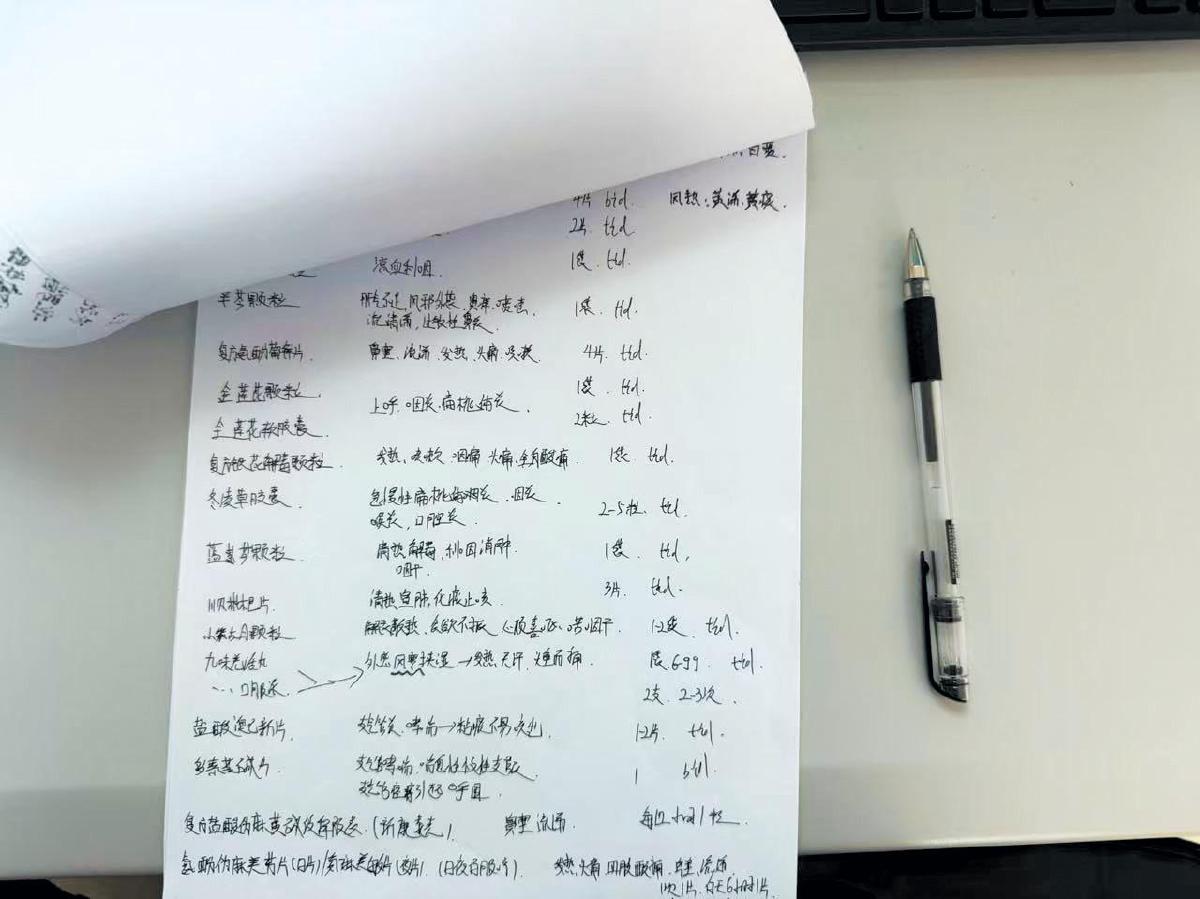 4片 bid. 风热:黄涕,黄痰.
2片. tid
凉血利咽. 1袋. tid.
芩颗粒 肺气不足,风邪外袭,鼻痒.喷嚏. 1袋. tid.
流清涕,过敏性鼻炎
复方氨酚葡锌片. 鼻塞、流涕、发热、头痛、咳嗽. 4片. tid.
金莲花颗粒. 1袋. tid.
上呼.咽炎.扁桃体炎.
金莲花软胶囊. 2粒. tid.
复方银花解毒颗粒. 发热、咳嗽 咽痛 头痛,全身酸痛 1袋. tid.
冬凌草胶囊 急慢性扁桃体咽炎、咽炎.
喉炎,口腔炎. 2-5粒. tid.
蓝芩颗粒 清热解毒,利咽消肿. 1袋. tid.
咽干.
川贝枇杷片. 清热宣肺,化痰止咳 3片. tid.
小柴胡颗粒 解表散热、食欲不振 心烦喜呕、咽干. 1-2袋. tid.
九味羌活丸 外感风寒挟湿→发热,无汗,头重而痛. 1袋 6-9g. tid
… 口服液. 2支. 2-3次.
盐酸溴己新片. 支管炎、哮喘→粘痰不易咳出 1-2片. tid.
支管哮喘.喘息性慢性支炎 1 bid.
多索茶碱片
支管痉挛引起呼困.
复方盐酸伪麻黄碱缓释胶囊.(新康泰克). 鼻塞 流涕 每12小时1粒.
氨酚伪麻美芬片(日片)/氨麻美敏片(夜片). (日夜百服咛) 发热,头痛 四肢酸痛、鼻塞,流涕,
1次1片.白天6小时1片.